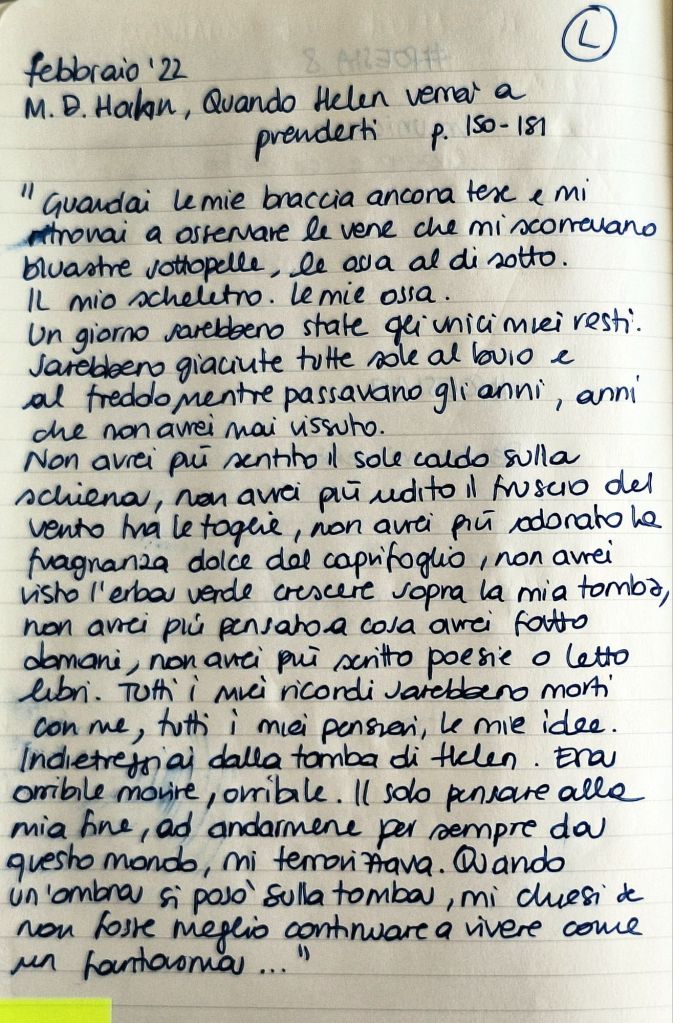 L
febbraio '22
M. D. Hahn, Quando Helen verrai a
prenderti p. 150-181
"Guardai le mie braccia ancora tese e mi
ritrovai a osservare le vene che mi scorrevano
bluastre sottopelle, le ossa al di sotto.
Il mio scheletro. Le mie ossa.
Un giorno sarebbero state gli unici miei resti.
Sarebbero giaciute tutte sole al buio e
al freddo mentre passavano gli anni, anni
che non avrei mai vissuto.
Non avrei più sentito il sole caldo sulla
schiena, non avrei più udito il fruscio del
vento tra le foglie, non avrei più odorato la
fragranza dolce del caprifoglio, non avrei
visto l'erba verde crescere sopra la mia tomba,
non avrei più pensato a cosa avrei fatto
domani, non avrei più scritto poesie o letto
libri. Tutti i miei ricordi sarebbero morti
con me, tutti i miei pensieri, le mie idee.
Indietreggiai dalla tomba di Helen. Era
orribile morire, orribile. Il solo pensare alla
mia fine, ad andarmene per sempre da
questo mondo, mi terrorizzava. Quando
un'ombra si posò sulla tomba, mi chiesi se
non fosse meglio continuare a vivere come
un fantasma..."